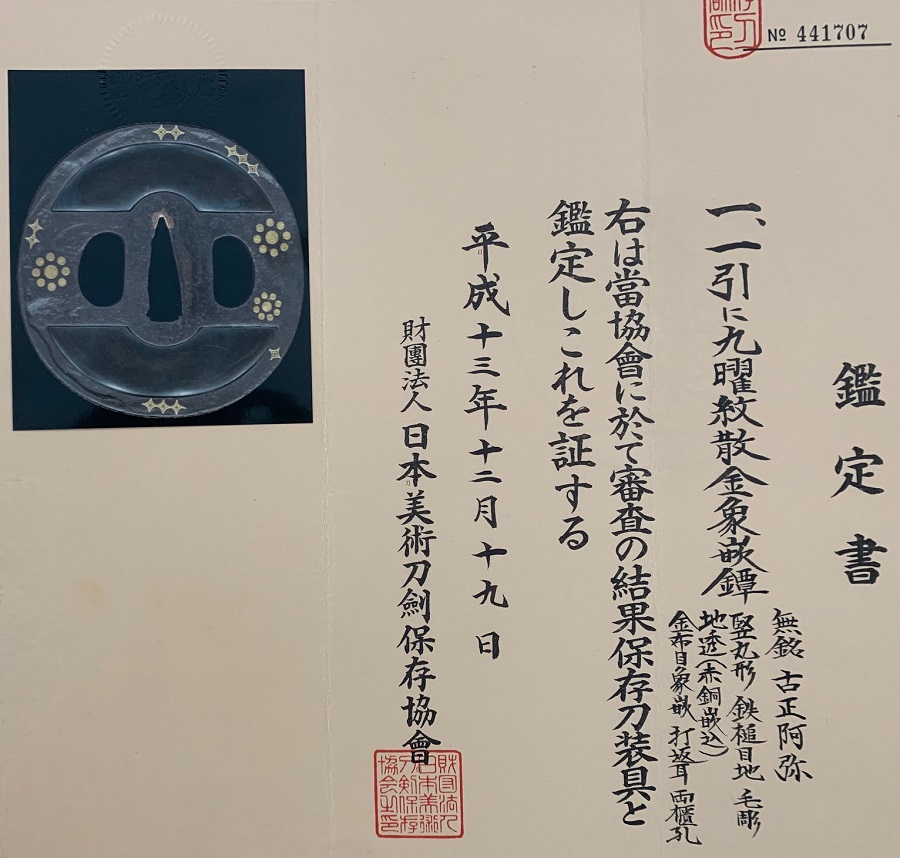 № 441707
鑑定書
一、一引に九曜紋散金象嵌鐔
無銘 古正阿弥
竪丸形 鉄槌目地 毛彫
地透(赤銅嵌込)
金布目象嵌 打返耳 両櫃孔
右は當協會に於て審査の結果保存刀装具と
鑑定しこれを証する
平成十三年十二月十九日
財團法人日本美術刀劍保存協會
財団法人
日本美術
刀剣保存
協会之印